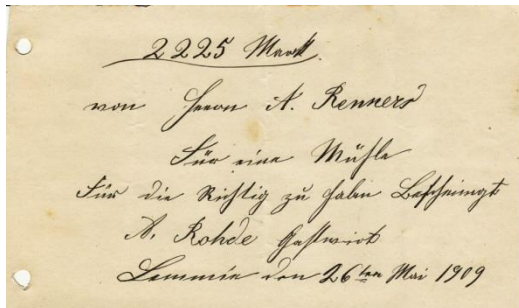 2225 Mark
von Herrn A. Renners
Für eine Mühle
Für die Richtig zu haben Bescheinigt
A. Rohde Gastwirt
Lemmie den 26ten Mai 1909